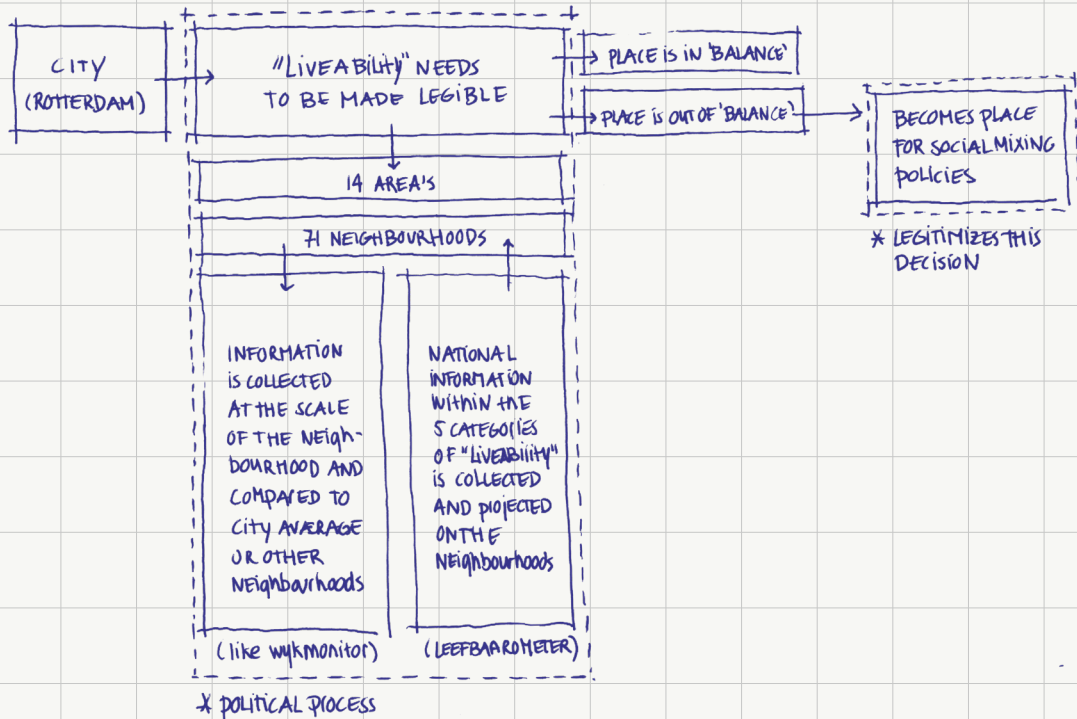 CITY
(ROTTERDAM)
"LIVEABILITY" NEEDS
TO BE MADE LEGIBLE
PLACE IS IN 'BALANCE'
PLACE IS OUT OF 'BALANCE'
BECOMES PLACE
FOR SOCIAL MIXING
POLICIES
* LEGITIMIZES THIS
DECISION
14 AREA'S
71 NEIGHBOURHOODS
INFORMATION
IS COLLECTED
AT THE SCALE
OF THE NEIGH-
BOURHOOD AND
COMPARED TO
CITY AVERAGE
OR OTHER
NEIGHBOURHOODS
(like wykmonitor)
NATIONAL
INFORMATION
WITHIN THE
5 CATEGORIES
OF "LIVEABILITY"
IS COLLECTED
AND PROJECTED
ON THE
NEIGHBOURHOODS
(LEEFBAAROMETER)
* POLITICAL PROCESS